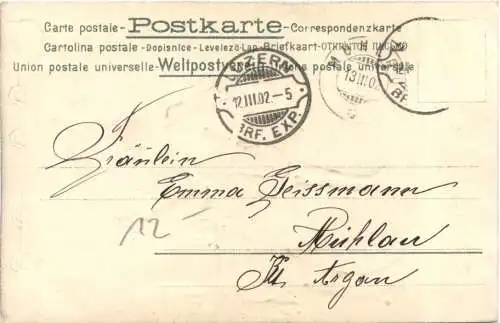 Carte postale- Postkarte -Correspondenzkarte
Cartolina postale -Dopisnice - Levelező-Lap - Briefkaart-ОТКРЫТОЕ ПИСЬМО
Union postale universelle-Weltpostverein-Unione postale universelle
LUZERN
12.III.02.-5
BRF. EXP.
13.III.02
Fräulein
Emma Geissmann
Mühlau
Kt Argau
12-